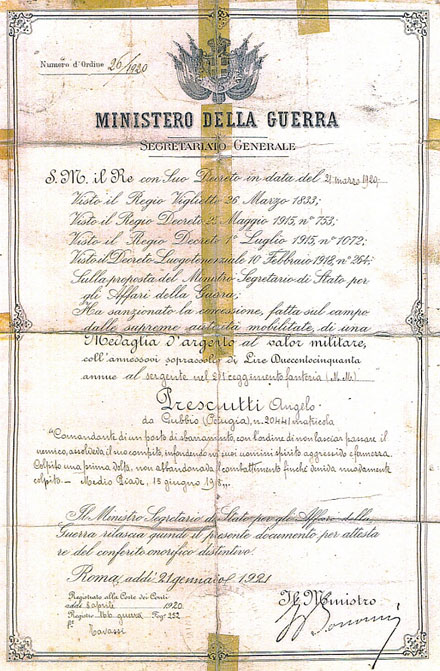 Numero d'Ordine 26/1920
MINISTERO DELLA GUERRA
SEGRETARIATO GENERALE
S. M. il Re con Suo Decreto in data del 21 marzo 1920
Visto il Regio Viglietto 26 Marzo 1833;
Visto il Regio Decreto 2 Maggio 1915, nº 753;
Visto il Regio Decreto 1º Luglio 1915, nº 1072;
Visto il Decreto Luogotenenziale 10 Febbraio 1918, nº 264;
Sulla proposta del Ministro Segretario di Stato per
gli Affari della Guerra;
Ha sanzionato la concessione, fatta sul campo
dalle supreme autorità mobilitate, di una
Medaglia d'argento al valor militare,
coll'annessovi soprassoldo di Lire Duecentocinquanta
annue al sergente nel reggimento fanteria (M. M.)
Prescutti Angelo
da Gubbio (Perugia), n. 20441 matricola
"Comandante di un posto di sbarramento, con l'ordine di non lasciar passare il
nemico, assolveva il suo compito, infondendo ne' suoi uomini spirito aggressivo e fermezza.
Colpito una prima volta, non abbandonava il combattimento finchè veniva nuovamente
colpito. — Medio Piave, 15 giugno 1918
Il Ministro Segretario di Stato per gli Affari della
Guerra rilascia quindi il presente documento per attesta
re del conferito onorifico distintivo.
Roma, addì 21 gennaio 1921
Registrato alla Corte dei Conti
addì 8 aprile 1920
Registro 46 guerra Fog. 252
Il Ministro
Bonomi